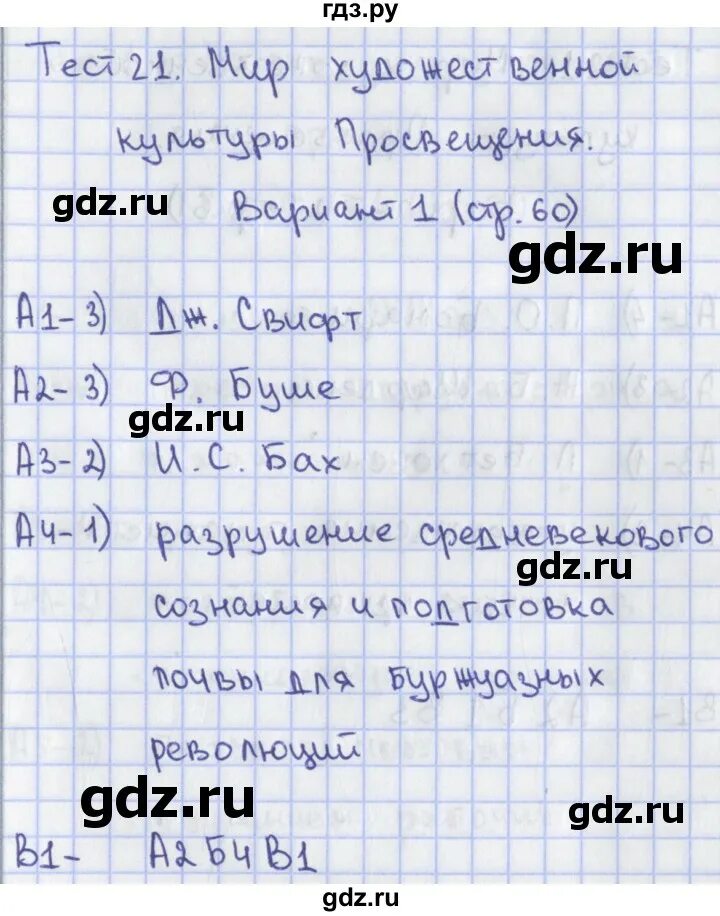 гдз.ру
Тест 21. Мир художественной
культуры Просвещения.
gdz.ru
Вариант 1 (стр. 60)
gdz.ru
А1- 3) Дж. Свифт
А2- 3) Ф. Буше
gdz.ru
А3- 2) И. С. Бах
А4- 1) разрушение средневекового
gdz.ru
сознания и подготовка
почвы для буржуазных
революций
gdz.ru
gdz.ru
В1- А2 Б4 В1
gdz.ru